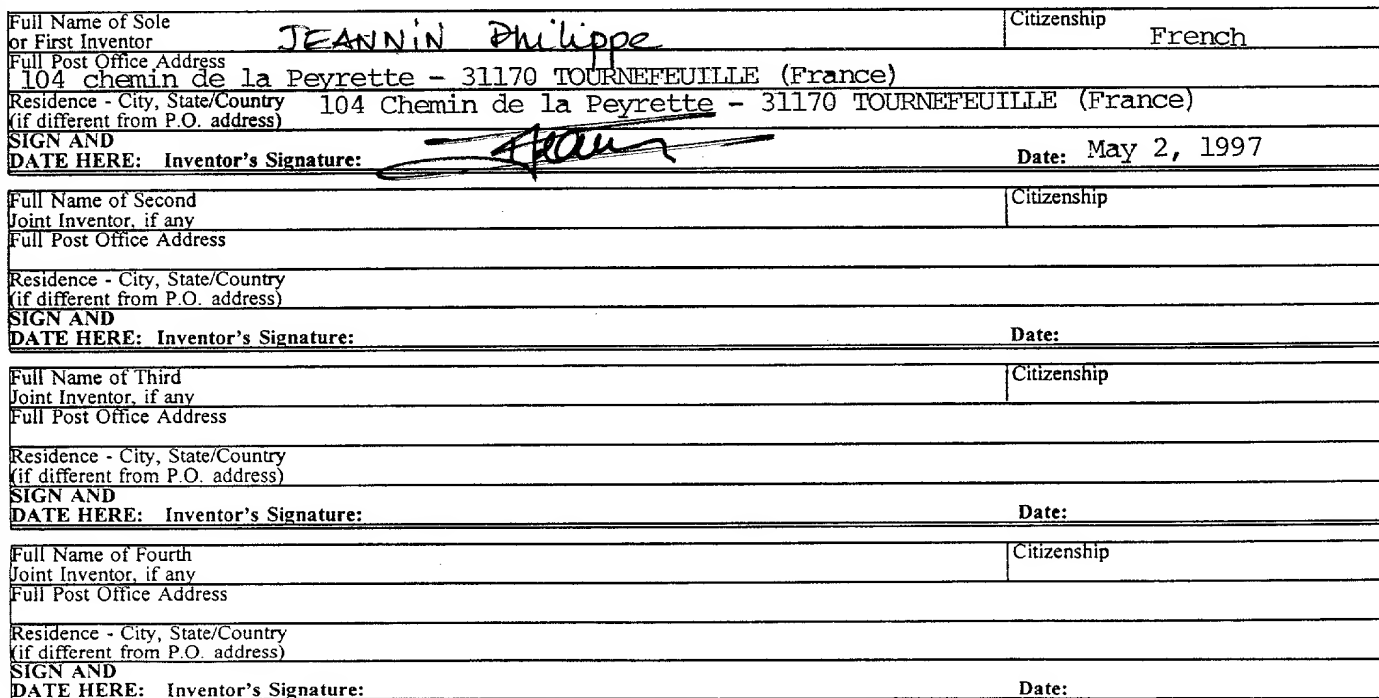 Full Name of Sole
or First Inventor JEANNIN Philippe
Citizenship
French
Full Post Office Address
104 chemin de la Peyrette - 31170 TOURNEFEUILLE (France)
Residence - City, State/Country
(if different from P.O. address) 104 Chemin de la Peyrette - 31170 TOURNEFEUILLE (France)
SIGN AND
DATE HERE: Inventor's Signature: Date: May 2, 1997
Full Name of Second
Joint Inventor, if any
Citizenship
Full Post Office Address
Residence - City, State/Country
(if different from P.O. address)
SIGN AND
DATE HERE: Inventor's Signature: Date:
Full Name of Third
Joint Inventor, if any
Citizenship
Full Post Office Address
Residence - City, State/Country
(if different from P.O. address)
SIGN AND
DATE HERE: Inventor's Signature: Date:
Full Name of Fourth
Joint Inventor, if any
Citizenship
Full Post Office Address
Residence - City, State/Country
(if different from P.O. address)
SIGN AND
DATE HERE: Inventor's Signature: Date: